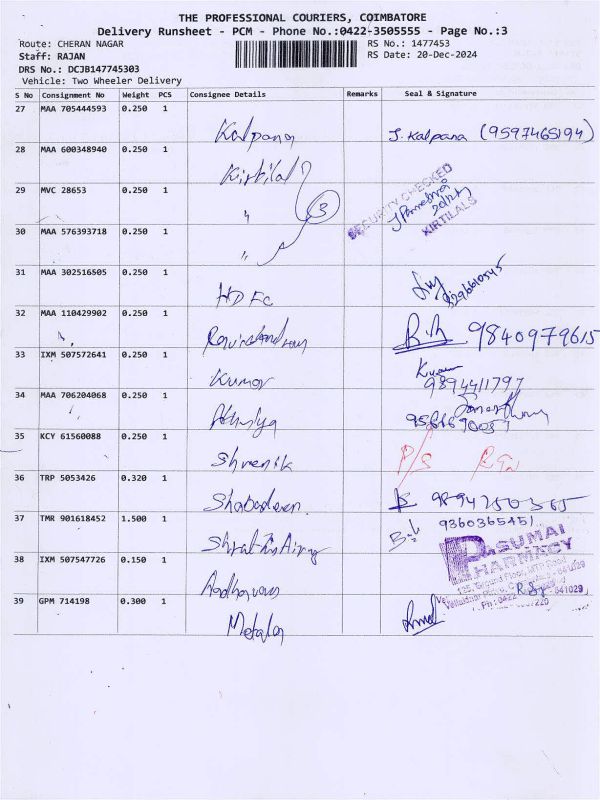 THE PROFESSIONAL COURIERS, COIMBATORE
Delivery Runsheet - PCM - Phone No.:0422-3505555 - Page No.:3
Route: CHERAN NAGAR
RS No.: 1477453
Staff: RAJAN
RS Date: 20-Dec-2024
DRS No.: DCJB147745303
Vehicle: Two Wheeler Delivery
S No Consignment No Weight PCS Consignee Details Remarks Seal & Signature
27 MAA 705444593 0.250 1
Kalpana J. Kalpana (9597465194)
28 MAA 600348940 0.250 1
Kirtilal
SECURITY CHECKED
29 MVC 28653 0.250 1
" 3
KIRTILALS
30 MAA 576393718 0.250 1
"
31 MAA 302516505 0.250 1
HDFC
32 MAA 110429902 0.250 1
9840979615
33 IXM 507572641 0.250 1
Kumar 9894411797
34 MAA 706204068 0.250 1
35 KCY 61560088 0.250 1
Shrenik P/S
36 TRP 5053426 0.320 1
37 TMR 901618452 1.500 1
936036545)
PASUMAI
PHARMACY
38 IXM 507547726 0.150 1
39 GPM 714198 0.300 1